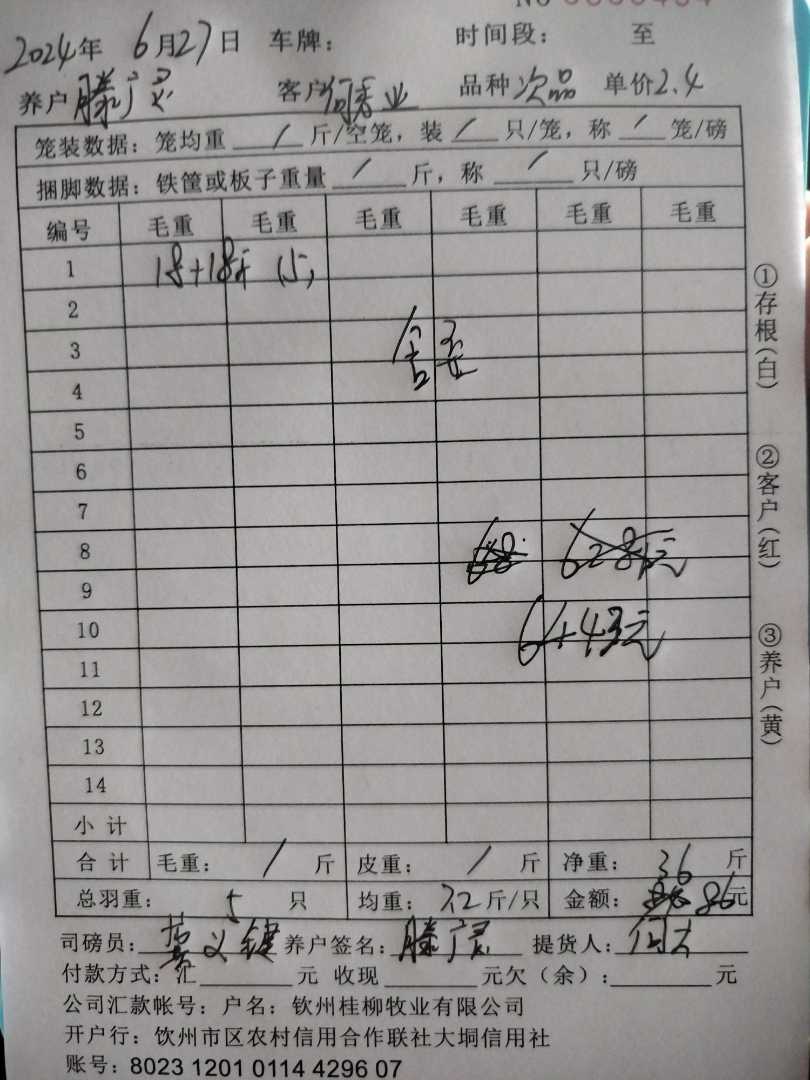 NO
2024年 6月27日 车牌： 时间段： 至
养户 滕广 客户 业 品种 次品 单价2.4
笼装数据：笼均重 / 斤/空笼，装 / 只/笼，称 / 笼/磅
捆脚数据：铁筐或板子重量 / 斤，称 / 只/磅
编号 毛重 毛重 毛重 毛重 毛重 毛重
1 18+18斤 (5)
2
3
4
5
6
7
8
9
10
11
12
13
14
小计
合计 毛重： / 斤 皮重： / 斤 净重： 36 斤
总羽重： 5 只 均重： 7.2 斤/只 金额： 86 元
司磅员： 义键 养户签名： 滕广 提货人：
付款方式：汇 元 收现 元欠（余）： 元
公司汇款帐号：户名：钦州桂柳牧业有限公司
开户行：饮州市区农村信用合作联社大垌信用社
账号：8023 1201 0114 4296 07
①存根(白)
②客户(红)
③养户(黄)